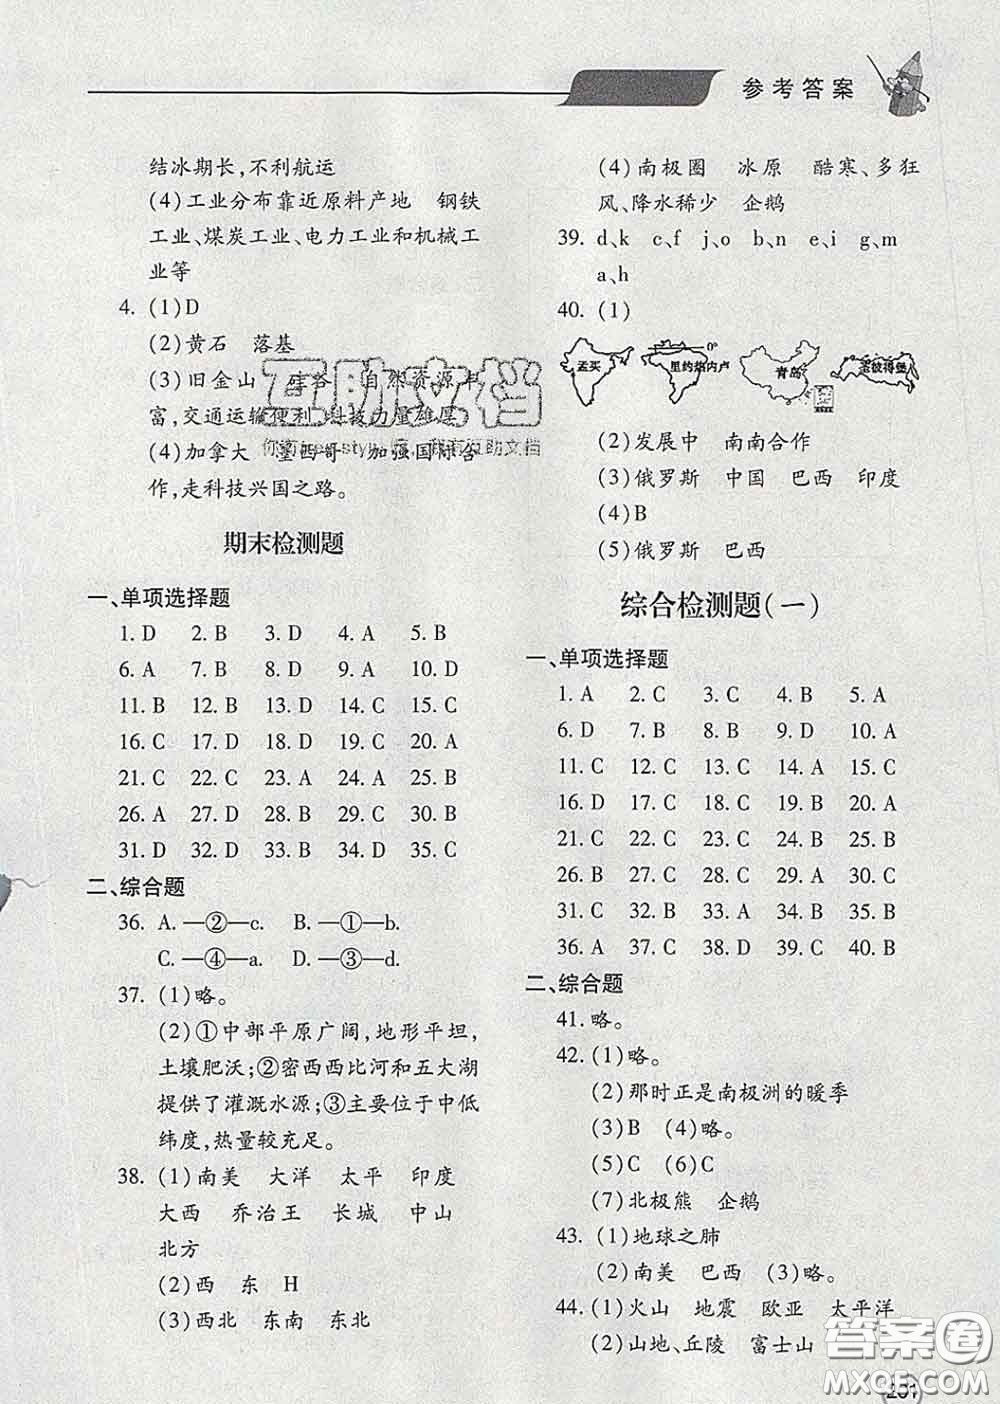 参考答案
结冰期长,不利航运
(4)工业分布靠近原料产地 钢铁
工业、煤炭工业、电力工业和机械工
业等
4. (1)D
(2)黄石 落基
(3)旧金山 硅谷 自然资源丰
富,交通运输便利,科技力量雄厚
(4)加拿大 墨西哥 加强国际合
作,走科技兴国之路。
互助文档
期末检测题
一、单项选择题
1. D 2. B 3. D 4. A 5. B
6. A 7. B 8. D 9. A 10. D
11. B 12. B 13. D 14. C 15. C
16. C 17. D 18. D 19. C 20. A
21. C 22. C 23. A 24. C 25. B
26. A 27. D 28. B 29. C 30. B
31. D 32. D 33. B 34. D 35. C
二、综合题
36. A. —②—c. B. —①—b.
C. —④—a. D. —③—d.
37. (1)略。
(2)①中部平原广阔,地形平坦,
土壤肥沃;②密西西比河和五大湖
提供了灌溉水源;③主要位于中低
纬度,热量较充足。
38. (1)南美 大洋 太平 印度
大西 乔治王 长城 中山
北方
(2)西 东 H
(3)西北 东南 东北
(4)南极圈 冰原 酷寒、多狂
风、降水稀少 企鹅
39. d、k c、f j、o b、n e、i g、m
a、h
40. (1)
孟买 里约热内卢 0° 青岛 圣彼得堡
(2)发展中 南南合作
(3)俄罗斯 中国 巴西 印度
(4)B
(5)俄罗斯 巴西
综合检测题(一)
一、单项选择题
1. A 2. C 3. C 4. B 5. A
6. D 7. B 8. B 9. D 10. A
11. C 12. C 13. C 14. A 15. C
16. D 17. B 18. C 19. B 20. A
21. C 22. C 23. C 24. C 25. B
26. B 27. C 28. C 29. A 30. C
31. C 32. C 33. A 34. B 35. B
36. A 37. C 38. D 39. C 40. B
二、综合题
41. 略。
42. (1)略。
(2)那时正是南极洲的暖季
(3)B (4)略。
(5)C (6)C
(7)北极熊 企鹅
43. (1)地球之肺
(2)南美 巴西 (3)略。
44. (1)火山 地震 欧亚 太平洋
(2)山地、丘陵 富士山
答案圈
MXQE.COM
201